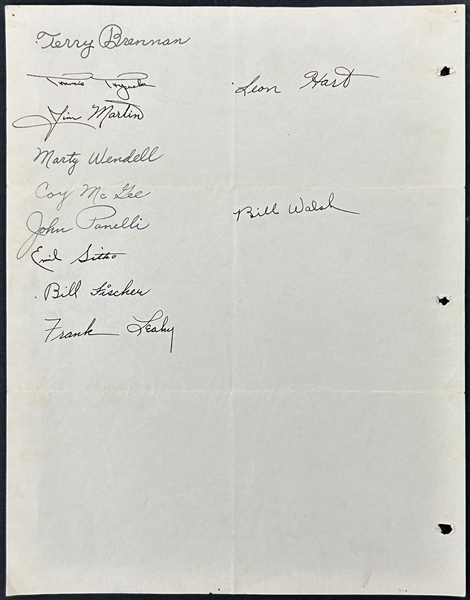 Terry Brennan
Leon Hart
Jim Martin
Marty Wendell
Coy McGee
John Panelli
Bill Walsh
Emil Sitko
Bill Fischer
Frank Leahy